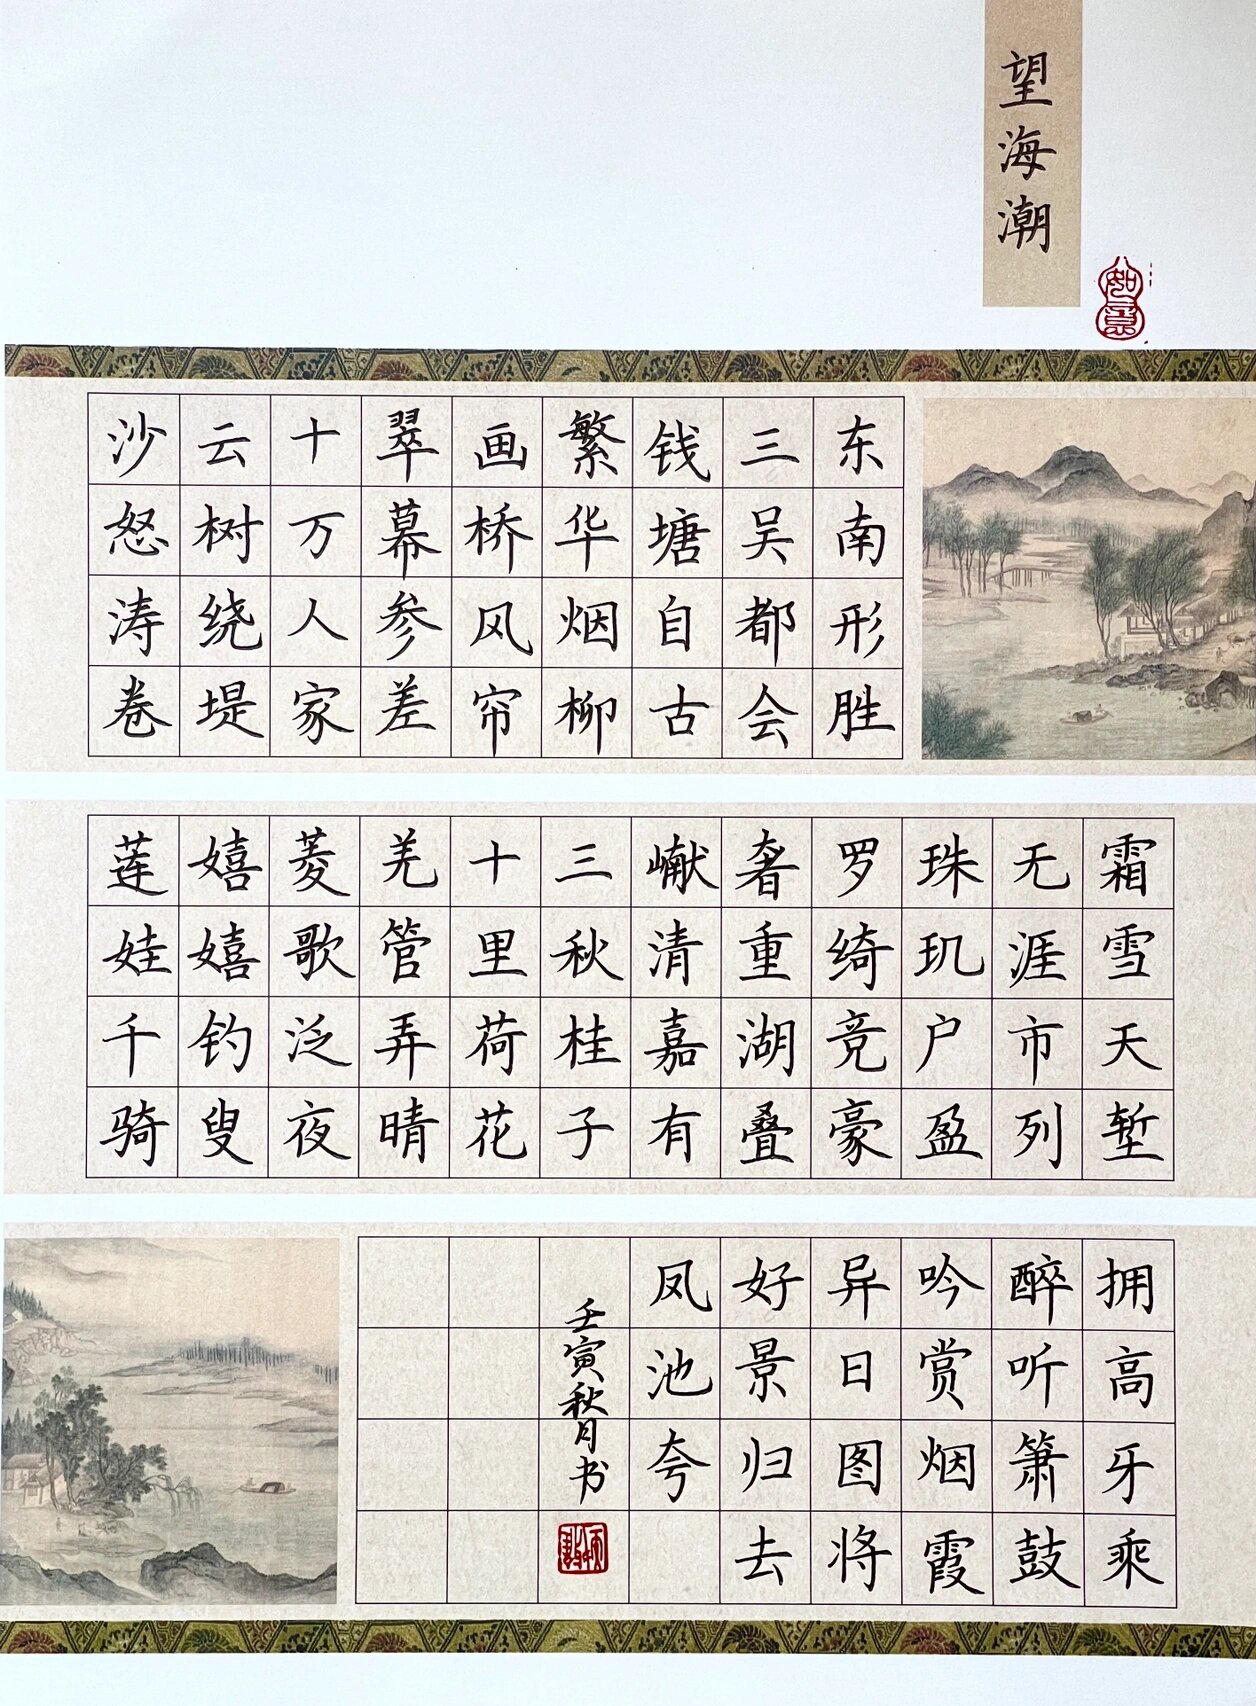 望海潮
如意
东南形胜
三吴都会
钱塘自古
繁华烟柳
画桥风帘
翠幕参差
十万人家
云树绕堤
沙怒涛卷
霜雪天堑
无涯市列
珠玑户盈
罗绮竞豪
奢重湖叠
𪩘清嘉有
三秋桂子
十里荷花
羌管弄晴
菱歌泛夜
嬉嬉钓叟
莲娃千骑
拥高牙乘
醉听箫鼓
吟赏烟霞
异日图将
好景归去
凤池夸
壬寅秋月书